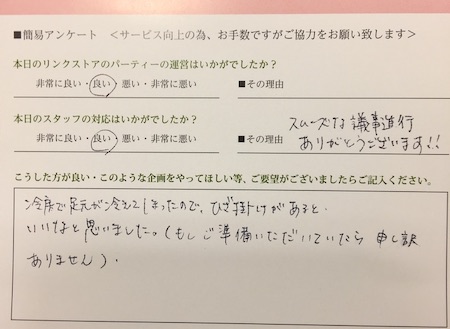 ■簡易アンケート ＜サービス向上の為、お手数ですがご協力をお願い致します＞
本日のリンクストアのパーティーの運営はいかがでしたか？
非常に良い・良い・悪い・非常に悪い ■その理由
本日のスタッフの対応はいかがでしたか？
非常に良い・良い・悪い・非常に悪い ■その理由 スムーズな議事進行
ありがとうございます!!
こうした方が良い・このような企画をやってほしい等、ご要望がございましたらご記入ください。
冷房で足元が冷えてしまったので、ひざ掛けがあると
いいなと思いました。(もしご準備いただいていたら 申し訳
ありません)。